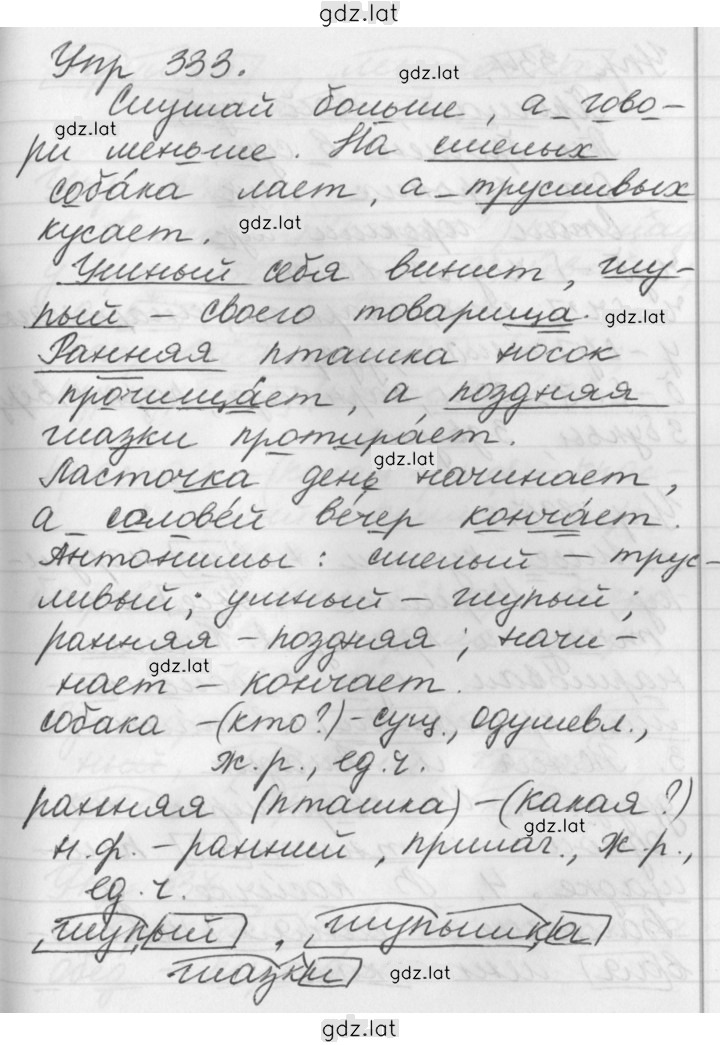 gdz.lat
Упр 333.
gdz.lat
Слушай больше, а гово-
gdz.lat
ри меньше. На смелых
собáка лает, а трусливых
кусает.
gdz.lat
Умный себя винит, глу-
пый – своего товарища.
gdz.lat
Ранняя пташка носок
прочищáет, а поздняя
глазки протирáет.
gdz.lat
Ласточка день начинает,
а соловéй вéчер кончáет.
Антонимы: смелый – трус-
ливый; умный – глупый;
ранняя – поздняя; начи-
gdz.lat
нает – кончает.
собака – (кто?) – сущ., одушевл.,
ж.р., ед.ч.
ранняя (пташка) – (какая?)
gdz.lat
н.ф. – ранний, прилаг., ж.р.,
ед.ч.
глупый, глупышка
глазки
gdz.lat
gdz.lat